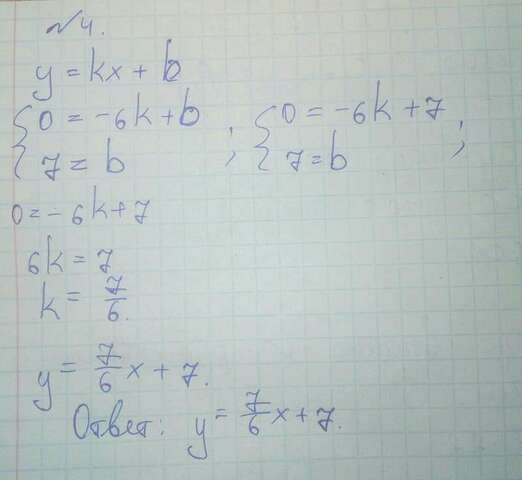 №4.
y = kx + b
{ 0 = -6k + b ; { 0 = -6k + 7 ;
7 = b 7 = b
0 = -6k + 7
6k = 7
k = 7/6.
y = 7/6 x + 7.
Ответ: y = 7/6 x + 7.